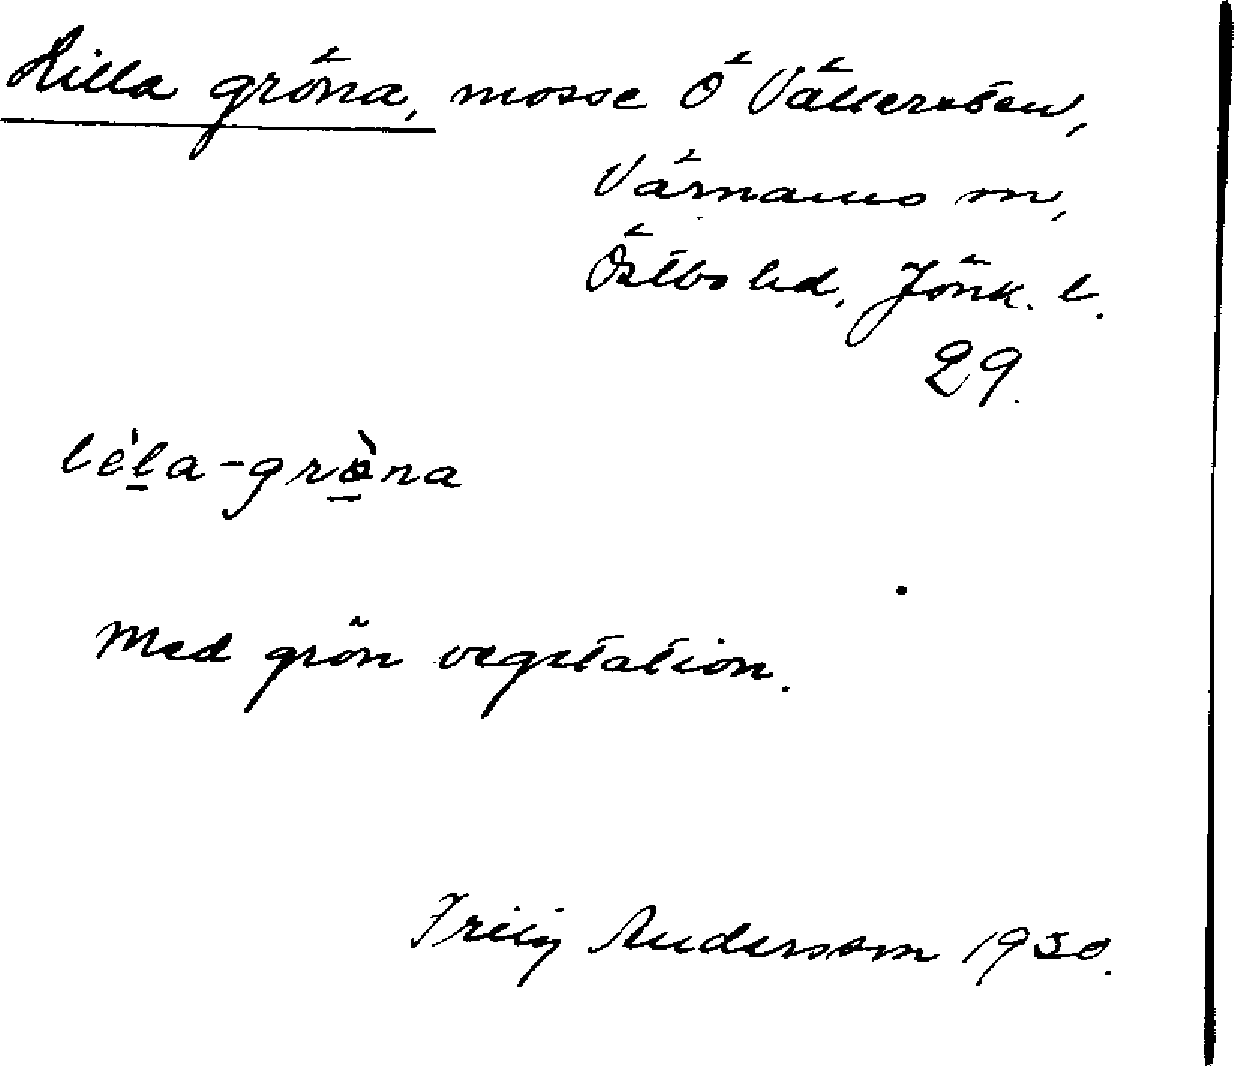 Lilla gröna, mosse Ö Vällersten,
Värnamo sn,
Östbo hd, Jönk. l.
29.
lèl̲a-grö̲̀na
Med grön vegetation.
Andersson 1930.